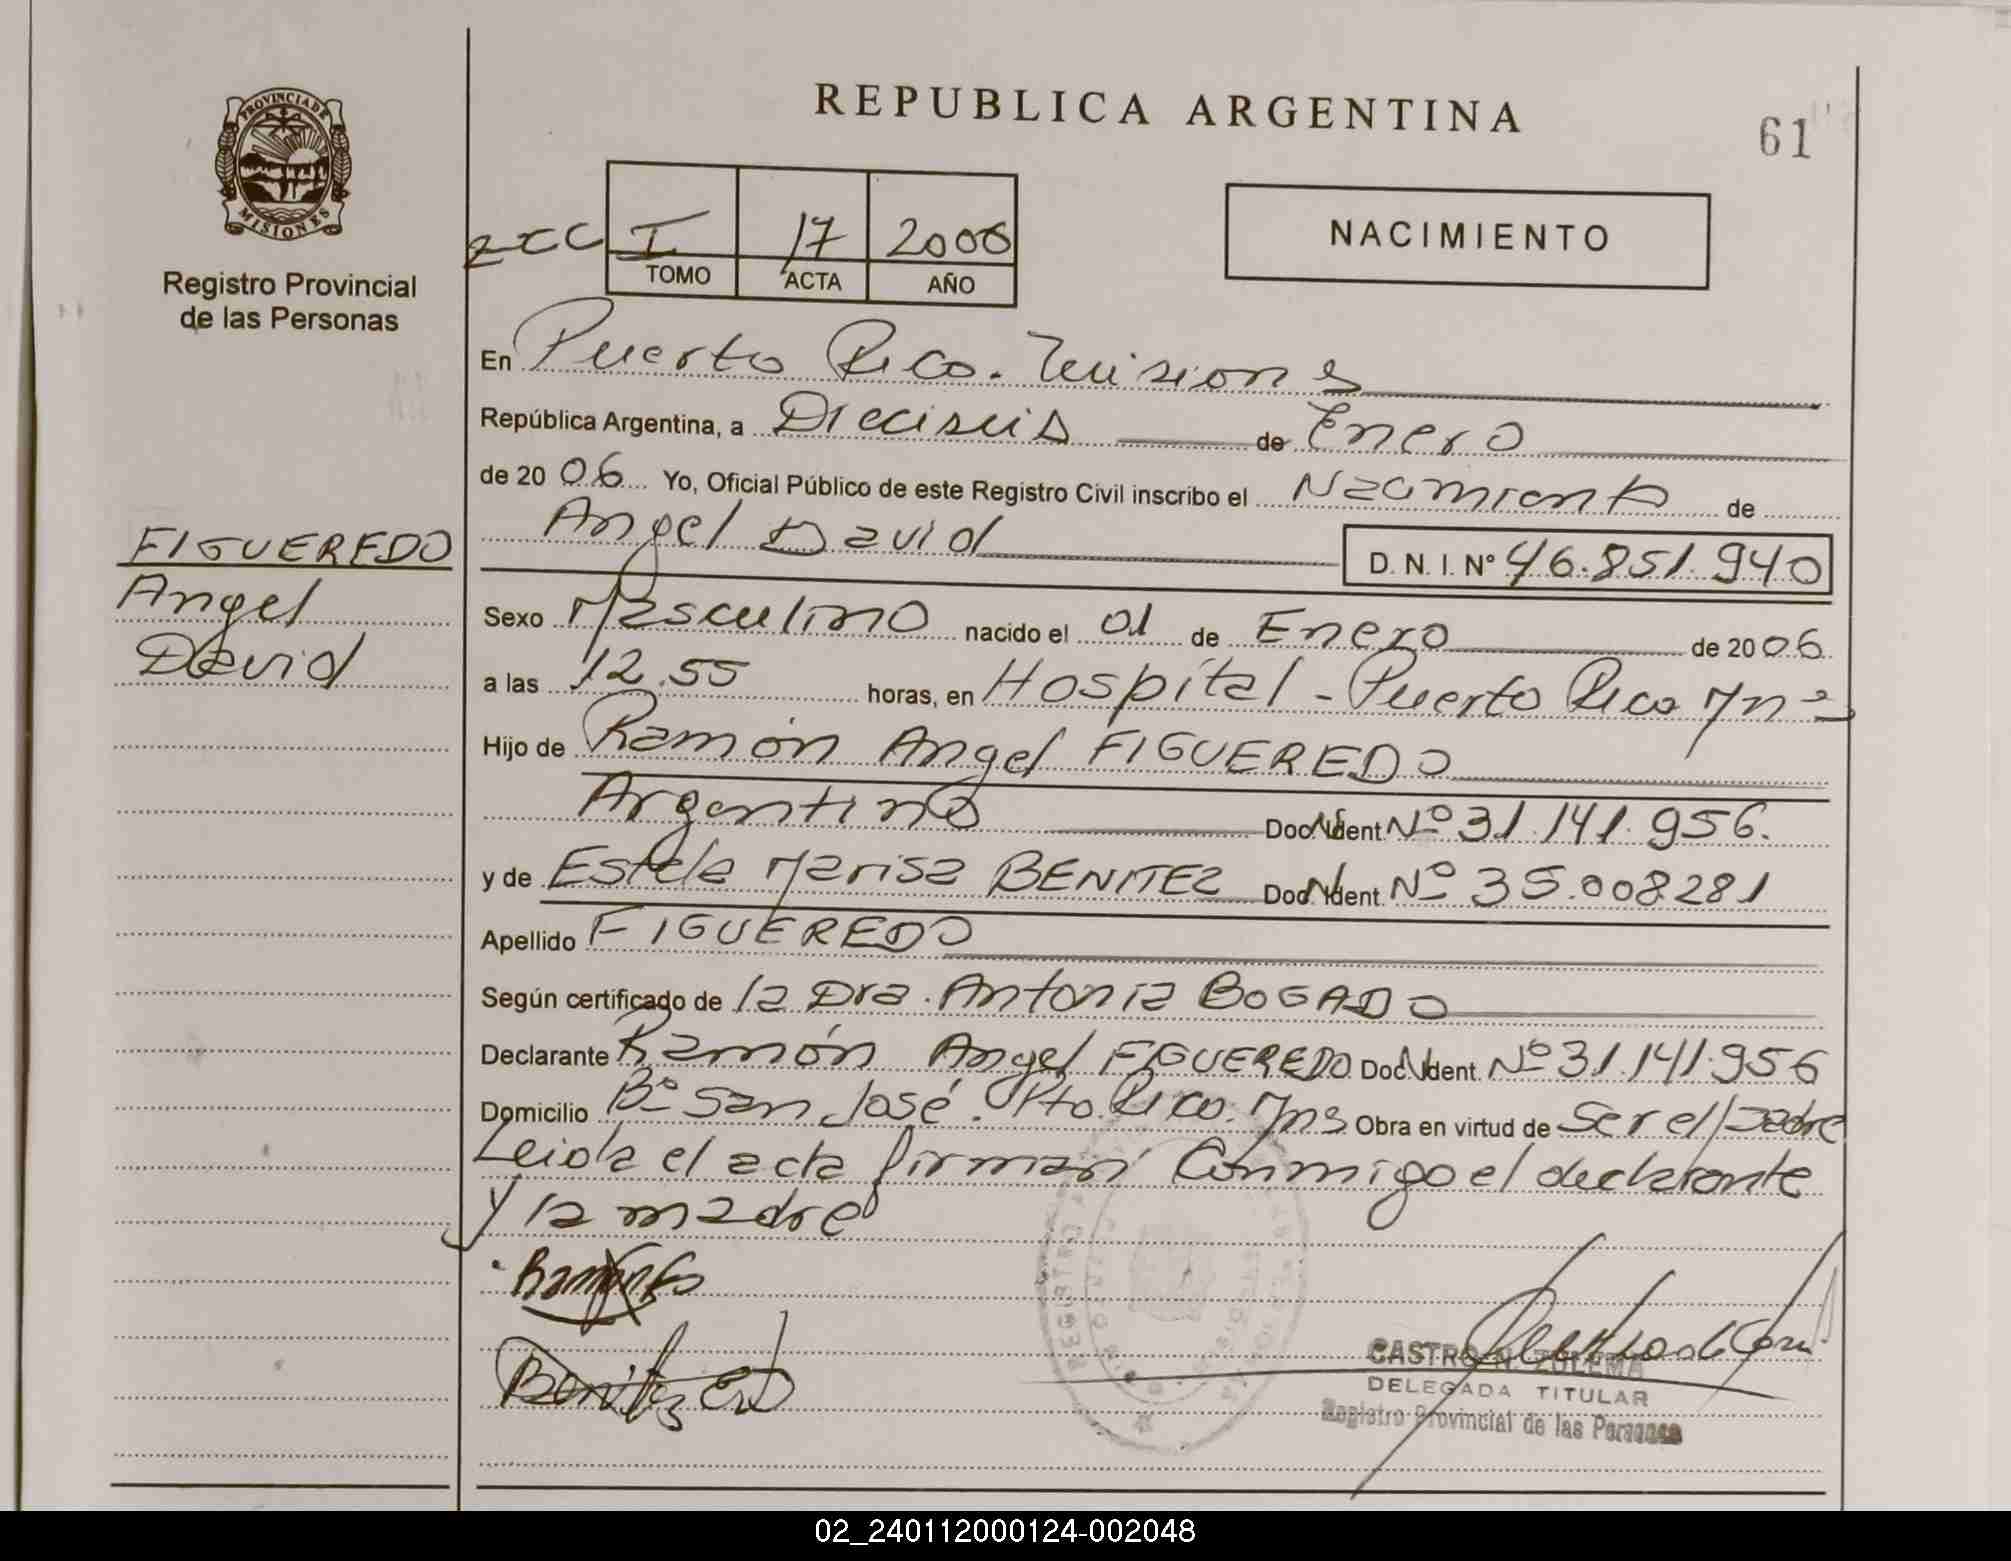 REPUBLICA ARGENTINA
61
PROVINCIA DE
MISIONES
Registro Provincial
de las Personas
I 17 2006
TOMO ACTA AÑO
NACIMIENTO
En Puerto Rico. Misiones
República Argentina, a Dieciseis de Enero
de 20 06 Yo, Oficial Público de este Registro Civil inscribo el Nacimiento de
Angel David D. N. I. Nº 46.851.940
FIGUEREDO
Angel
David
Sexo Masculino nacido el 01 de Enero de 20 06
a las 12.55 horas, en Hospital - Puerto Rico Mnes
Hijo de Ramón Angel FIGUEREDO
Argentino Doc. Ident. Nº 31.141.956.
y de Estela Marisa BENITEZ Doc. Ident. Nº 35.008281
Apellido FIGUEREDO
Según certificado de la Dra. Antonia BOGADO
Declarante Ramón Angel FIGUEREDO Doc. Ident. Nº 31.141.956
Domicilio Bº San José. Pto. Rico. Mns Obra en virtud de Ser el padre
Leida el acta firman Conmigo el declarante
y la madre
Benitez
CASTRO N. ZULEMA
DELEGADA TITULAR
Registro Provincial de las Personas
02_240112000124-002048